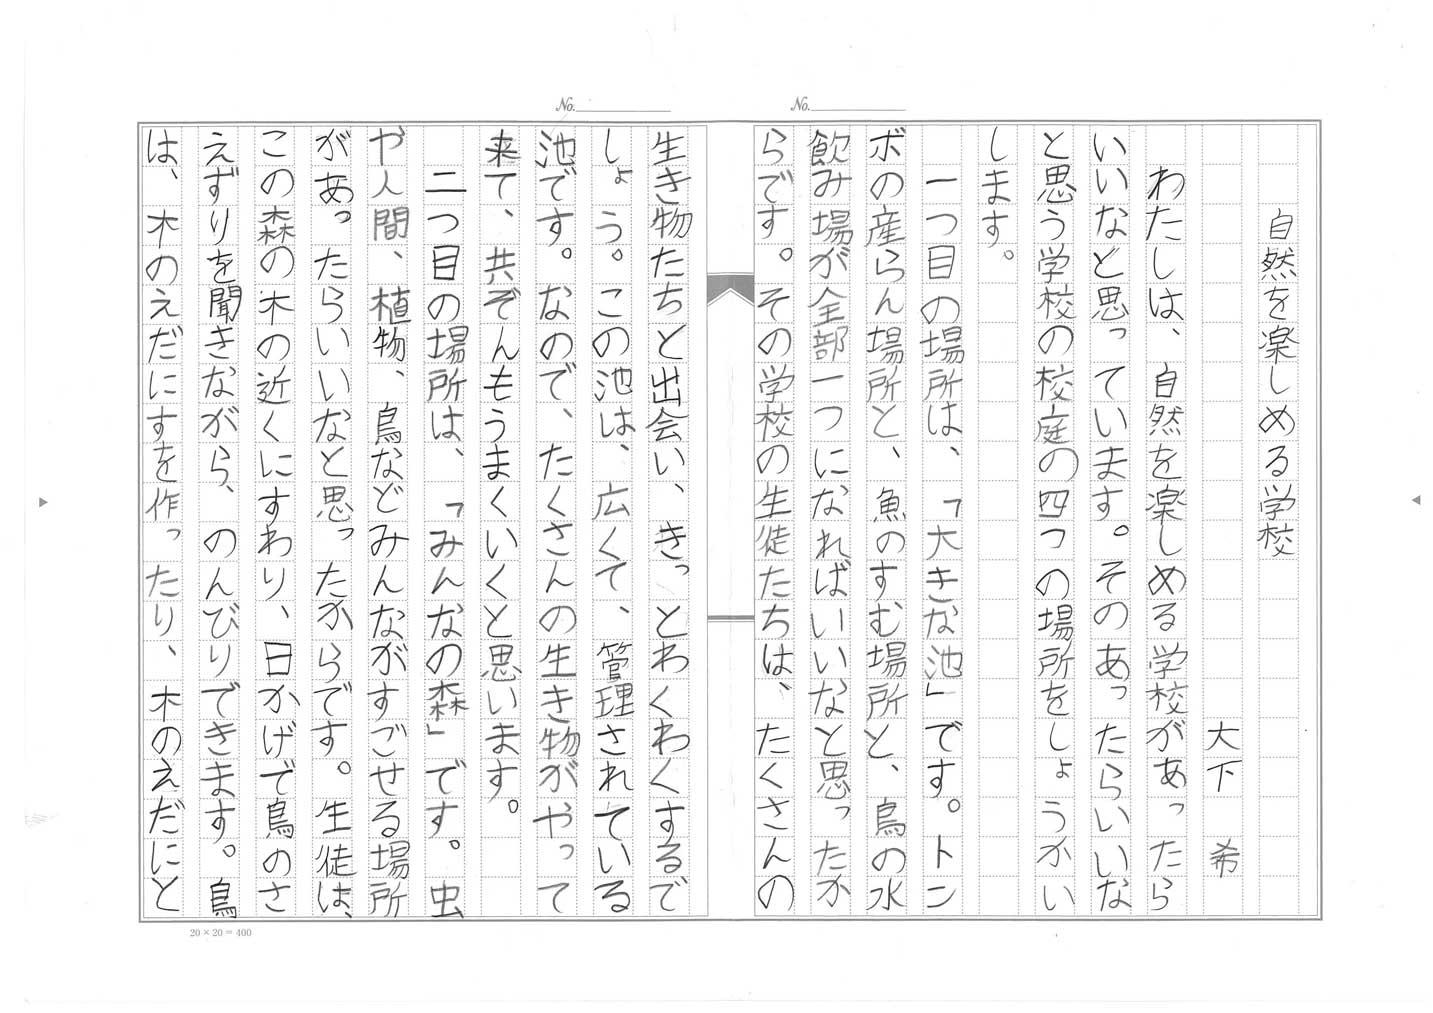 No.
No.
自然を楽しめる学校
大下 希
わたしは、自然を楽しめる学校があったら
いいなと思っています。そのあったらいいな
と思う学校の校庭の四つの場所をしょうかい
します。
一つ目の場所は、「大きな池」です。トン
ボの産らん場所と、魚のすむ場所と、鳥の水
飲み場が全部一つになればいいなと思ったか
らです。その学校の生徒たちは、たくさんの
生き物たちと出会い、きっとわくわくするで
しょう。この池は、広くて、管理されている
池です。なので、たくさんの生き物がやって
来て、共ぞんもうまくいくと思います。
二つ目の場所は、「みんなの森」です。虫
や人間、植物、鳥などみんながすごせる場所
があったらいいなと思ったからです。生徒は、
この森の木の近くにすわり、日かげで鳥のさ
えずりを聞きながら、のんびりできます。鳥
は、木のえだにすを作ったり、木のえだにと
20×20=400